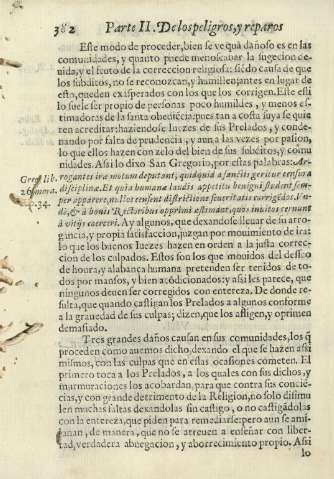 382 Parte II. De los peligros, y reparos
Este modo de proceder, bien se ve quã dañoso es en las
comunidades, y quanto puede menoscabar la sugecion de-
uida, y el fruto de la correccion religiosa: siẽdo causa de que
los subditos, no se reconozcan, y humillen, antes en lugar de
esto, queden exasperados con los que los corrigen. Este esti
lo suele ser propio de personas poco humildes, y menos es-
timadoras de la santa obediẽcia; pues tan a costa suya se quie
ren acreditar: haziendose Iuezes de sus Prelados, y conde-
nando por falta de prudencia, y aun a las vezes por passion,
lo que ellos hazen con zelo del bien de sus subditos, y comu
nidades. Assi lo dixo San Gregorio, por estas palabras: Ar-
Greg. lib. rogantes ira motum deputant, quidquid a sanctis geritur censura
26. mora. disciplinæ. Et quia humanæ laudis appetitu benigni student sem-
p. 34. per apparere, nullos censent districtione seueritatis corrigẽdos,
& à bonis Rectoribus opprimi estimant, quos inuitos cernunt
à vitijs coerceri. Ay algunos, que dexandose lleuar de su arro-
gancia, y propia satisfaccion, juzgan por mouimiento de iras
lo que los buenos Iuezes hazen en orden a la justa correc-
cion de los culpados. Estos son los que mouidos del desseo
de honra, y alabança humana pretenden ser tenidos de to-
dos por mansos, y bien acõdicionados; y assi les parece, que
ningunos deuen ser corregidos con entereza. De donde re-
sulta, que quando castigan los Prelados a algunos conforme
a la grauedad de sus culpas; dizen, que los afligen, y oprimen
demasiado.
Tres grandes daños causan en sus comunidades, los q̃
proceden como auemos dicho, dexando el que se hazen assi
mismos, con las culpas que en estas ocasiones cometen. El
primero toca a los Prelados, a los quales con sus dichos, y
murmuraciones los acobardan, para que contra sus conciẽ-
cias, y con grande detrimento de la Religion, no solo dissimu
len muchas faltas dexandolas sin castigo, o no castigãdolas
con la entereza, que piden para remediarse: pero aun se ami-
lanan, de manera, que no se atreuen a enseñar con liber-
tad, verdadera abnegacion, y aborrecimiento propio. Assi
lo